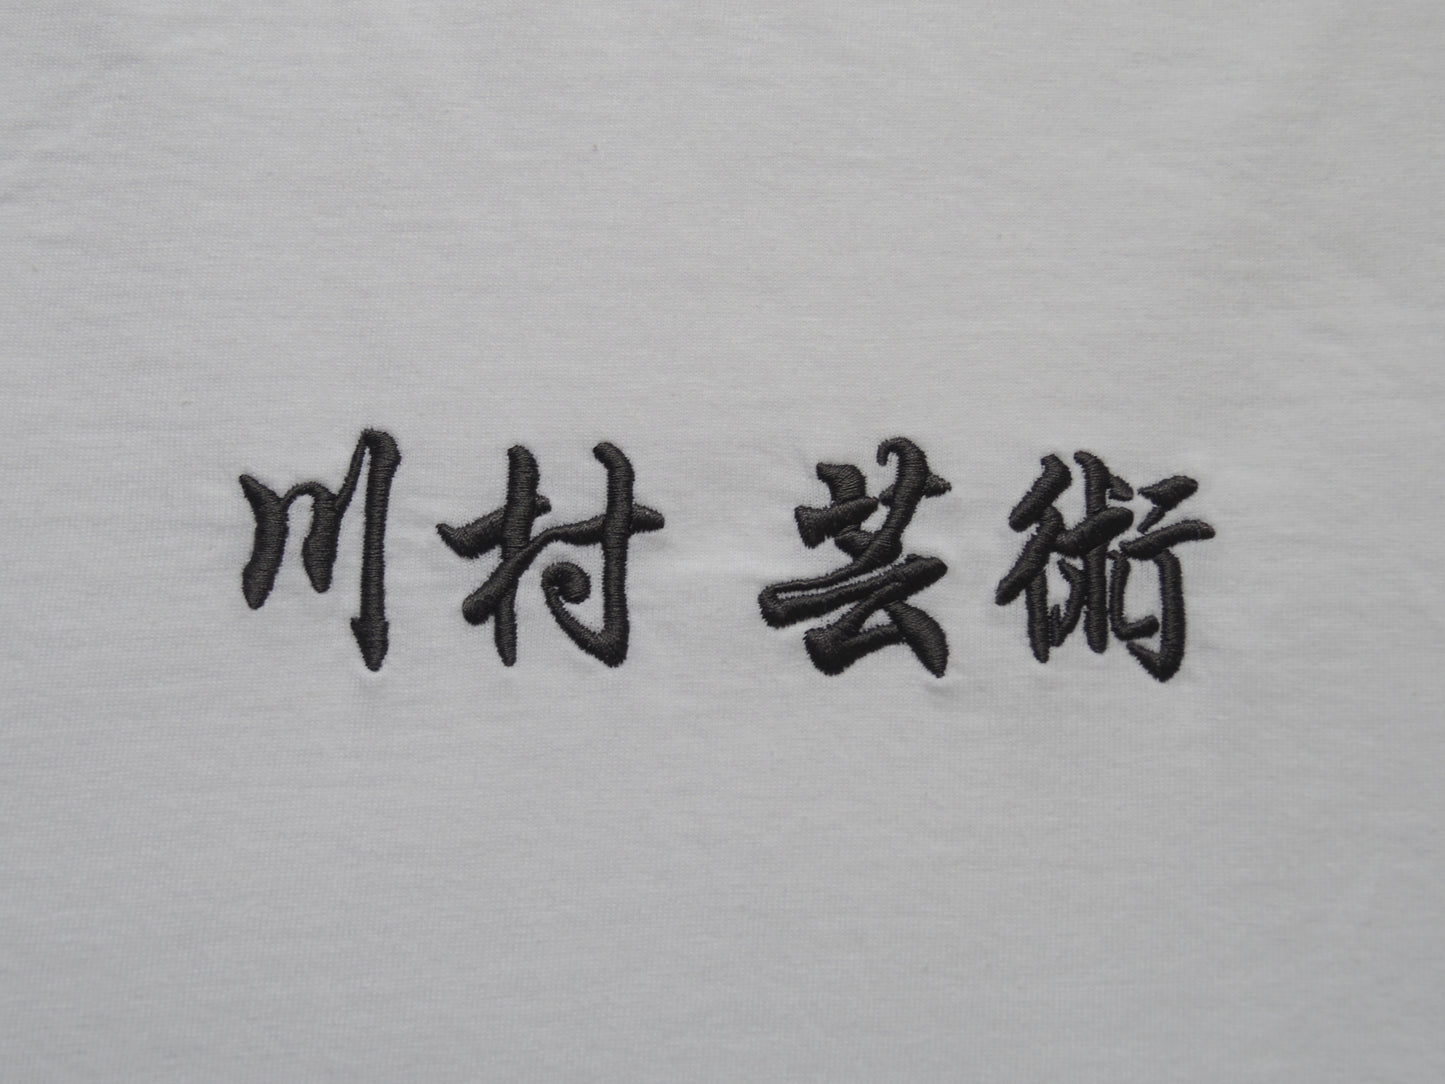 川村 芸術